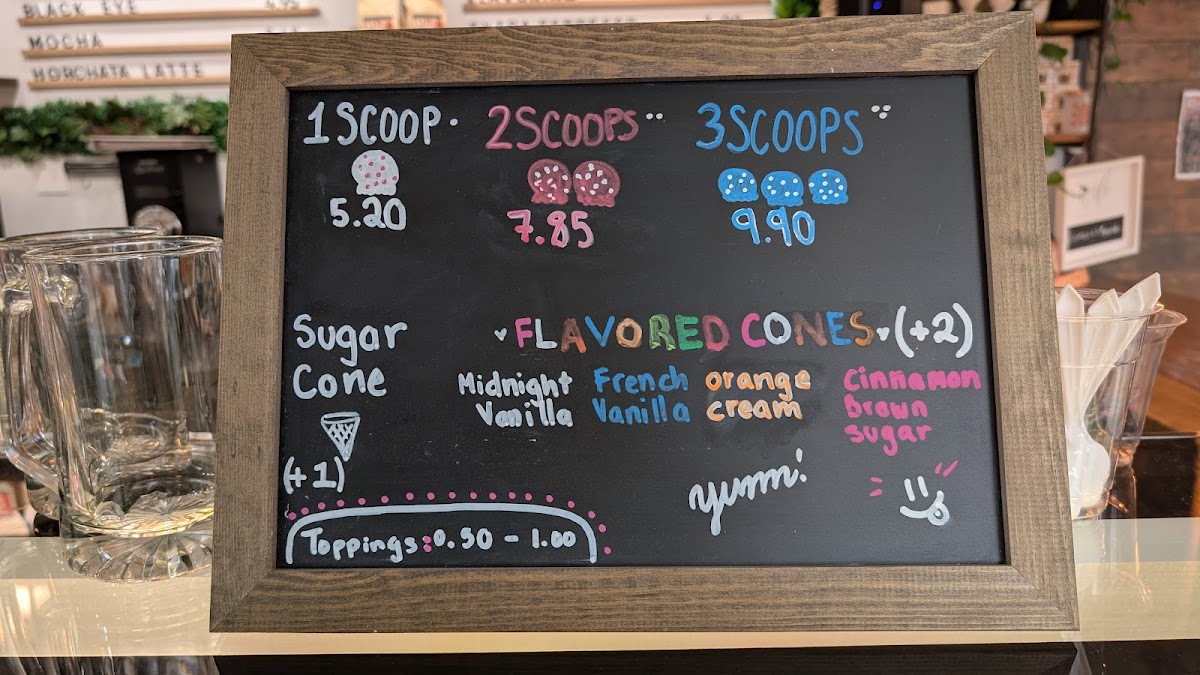 BLACK EYE 4.95
MOCHA
HORCHATA LATTE
1 SCOOP
5.20
2 SCOOPS
7.85
3 SCOOPS
9.90
Sugar
Cone
(+1)
FLAVORED CONES (+2)
Midnight
Vanilla
French
Vanilla
orange
cream
Cinnamon
Brown
sugar
yumm!
Toppings: 0.50 - 1.00